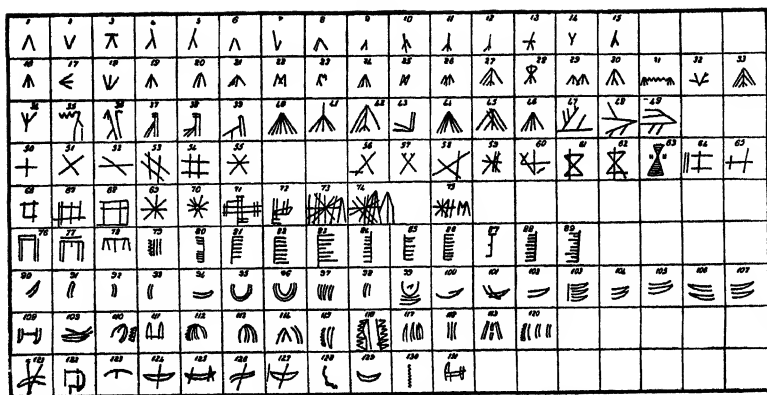 1 2 3 4 5 6 7 8 9 10 11 12 13 14 15
16 17 18 19 20 21 22 23 24 25 26 27 28 29 30 31 32 33
34 35 36 37 38 39 40 41 42 43 44 45 46 47 48 49
50 51 52 53 54 55 56 57 58 59 60 61 62 63 64 65
66 67 68 69 70 71 72 73 74 75
76 77 78 79 80 81 82 83 84 85 86 87 88 89
90 91 92 93 94 95 96 97 98 99 100 101 102 103 104 105 106 107
108 109 110 111 112 113 114 115 116 117 118 119 120
121 122 123 124 125 126 127 128 129 130 131